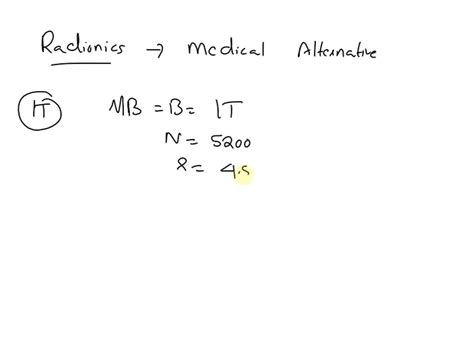 Radionics → Medical Alternative
1T MB = B = 1T
N = 5200
r = 4.5